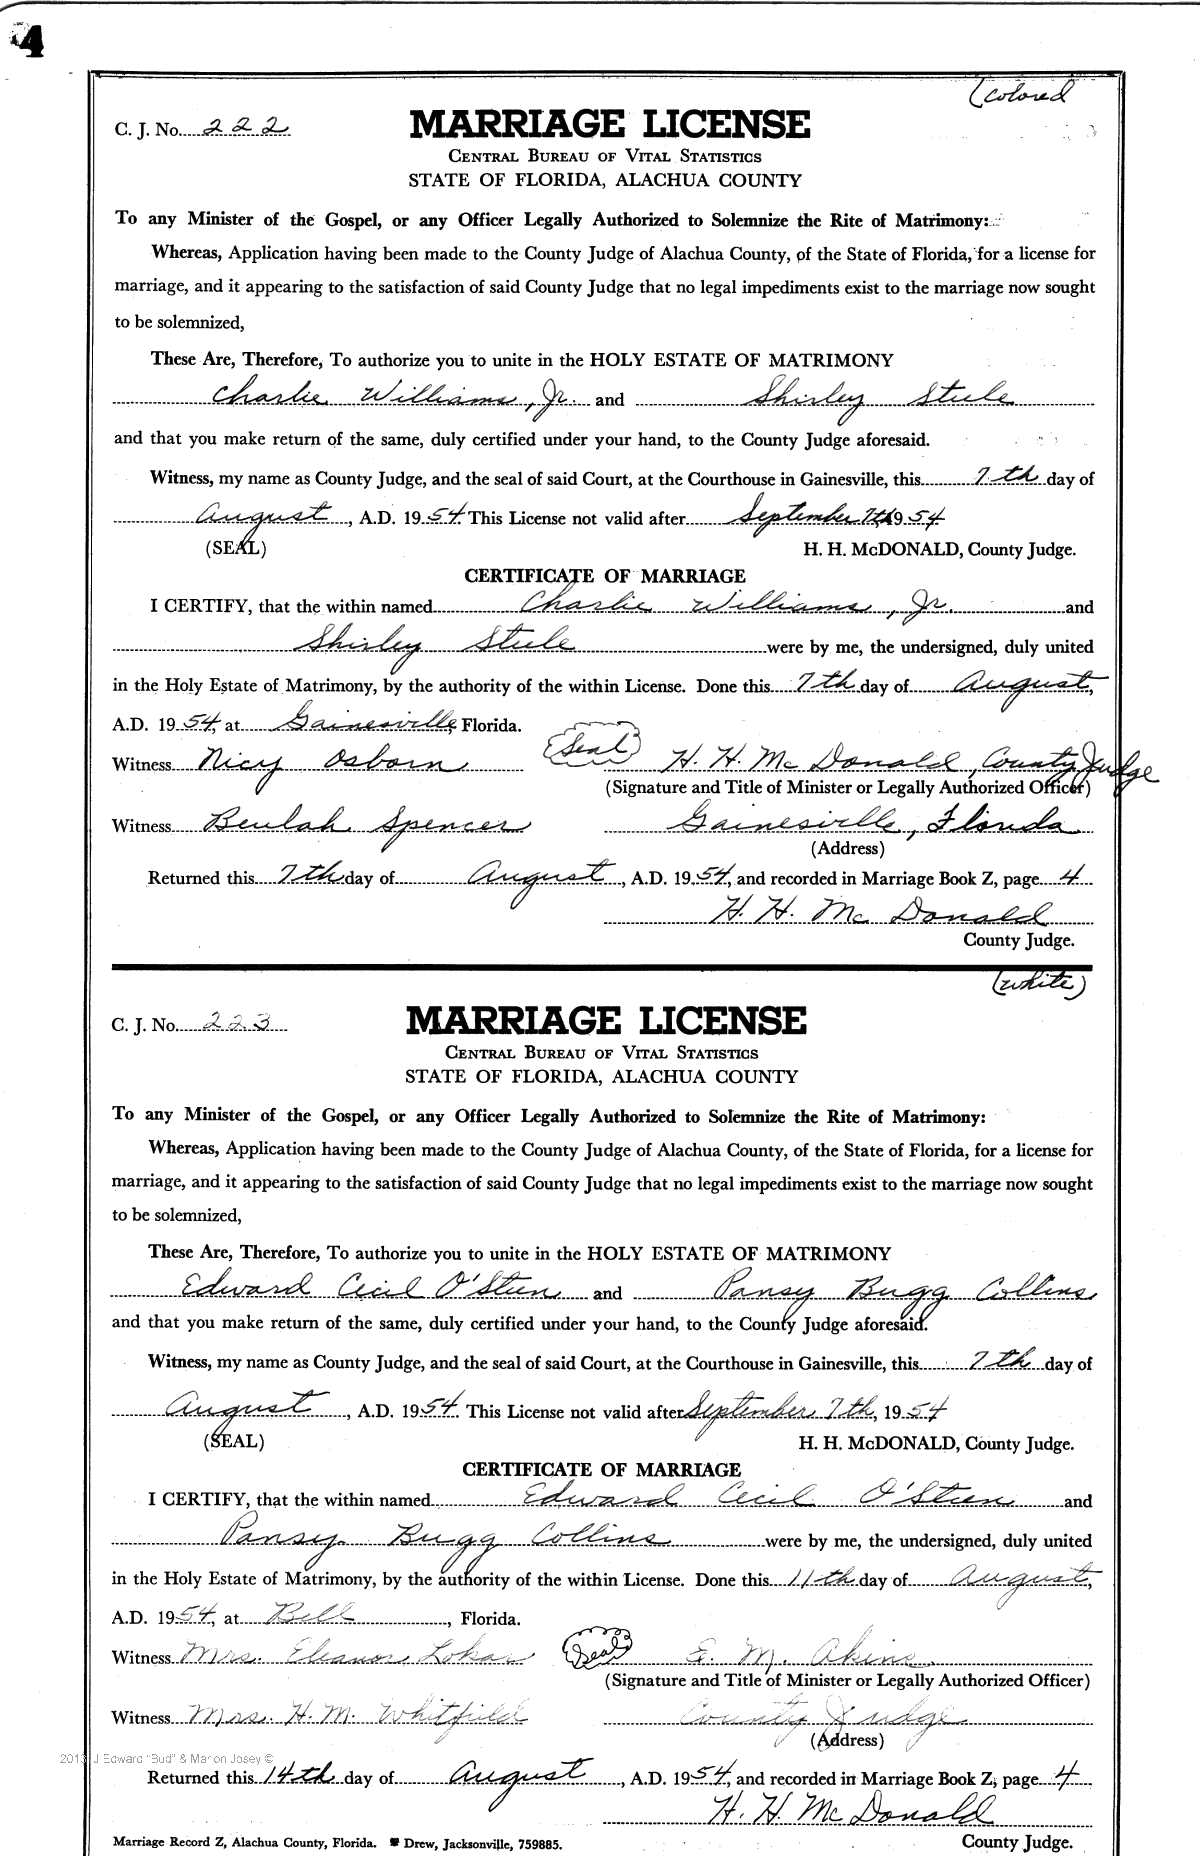 4
(colored
C. J. No. 222
MARRIAGE LICENSE
CENTRAL BUREAU OF VITAL STATISTICS
STATE OF FLORIDA, ALACHUA COUNTY
To any Minister of the Gospel, or any Officer Legally Authorized to Solemnize the Rite of Matrimony:
Whereas, Application having been made to the County Judge of Alachua County, of the State of Florida, for a license for
marriage, and it appearing to the satisfaction of said County Judge that no legal impediments exist to the marriage now sought
to be solemnized,
These Are, Therefore, To authorize you to unite in the HOLY ESTATE OF MATRIMONY
Charlie Williams, Jr. and Shirley Steele
and that you make return of the same, duly certified under your hand, to the County Judge aforesaid.
Witness, my name as County Judge, and the seal of said Court, at the Courthouse in Gainesville, this 7th day of
August, A.D. 1954. This License not valid after September 7th, 1954
(SEAL) H. H. McDONALD, County Judge.
CERTIFICATE OF MARRIAGE
I CERTIFY, that the within named Charlie Williams, Jr. and
Shirley Steele were by me, the undersigned, duly united
in the Holy Estate of Matrimony, by the authority of the within License. Done this 7th day of August,
A.D. 1954, at Gainesville, Florida.
Witness Nicy Osborn (Seal) H. H. McDonald, County Judge
(Signature and Title of Minister or Legally Authorized Officer)
Witness Beulah Spencer Gainesville, Florida
(Address)
Returned this 7th day of August, A.D. 1954, and recorded in Marriage Book Z, page 4
H. H. McDonald
County Judge.
(white)
C. J. No. 223
MARRIAGE LICENSE
CENTRAL BUREAU OF VITAL STATISTICS
STATE OF FLORIDA, ALACHUA COUNTY
To any Minister of the Gospel, or any Officer Legally Authorized to Solemnize the Rite of Matrimony:
Whereas, Application having been made to the County Judge of Alachua County, of the State of Florida, for a license for
marriage, and it appearing to the satisfaction of said County Judge that no legal impediments exist to the marriage now sought
to be solemnized,
These Are, Therefore, To authorize you to unite in the HOLY ESTATE OF MATRIMONY
Edward Cecil O'Steen and Pansy Bugg Collins
and that you make return of the same, duly certified under your hand, to the County Judge aforesaid.
Witness, my name as County Judge, and the seal of said Court, at the Courthouse in Gainesville, this 7th day of
August, A.D. 1954. This License not valid after September 7th, 1954
(SEAL) H. H. McDONALD, County Judge.
CERTIFICATE OF MARRIAGE
I CERTIFY, that the within named Edward Cecil O'Steen and
Pansy Bugg Collins were by me, the undersigned, duly united
in the Holy Estate of Matrimony, by the authority of the within License. Done this 11th day of August,
A.D. 1954, at Bell, Florida.
Witness Mrs. Eleanor Lokan (Seal) E. M. Akins
(Signature and Title of Minister or Legally Authorized Officer)
Witness Mrs. H. M. Whitfield County Judge
(Address)
2013 J Edward "Bud" & Marion Josey ©
Returned this 14th day of August, A.D. 1954, and recorded in Marriage Book Z, page 4
H. H. McDonald
Marriage Record Z, Alachua County, Florida. Drew, Jacksonville, 759885. County Judge.